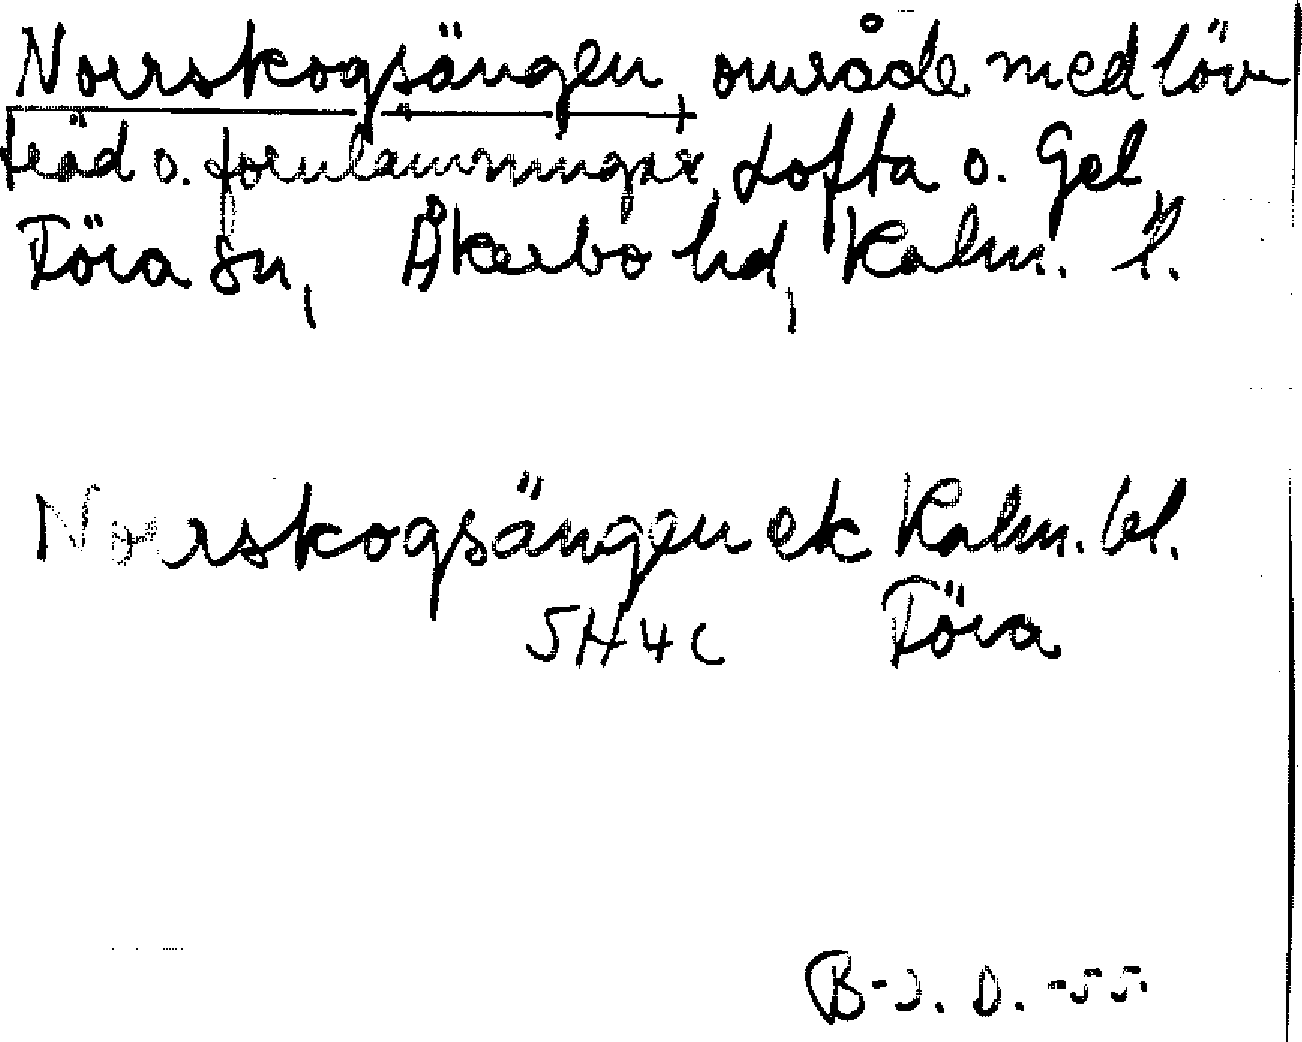 Norrskogsängen, område med löv
träd o. fornlämningar, Lofta o. Gel
Föra sn, Åkerbo hd, Kalm. l.
Norrskogsängen ek Kalm. bl.
5H4c Föra
B-J. D. -55.